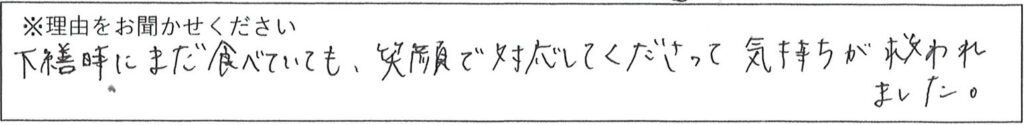 ※理由をお聞かせください
下膳時にまだ食べていても、笑顔で対応してくださって 気持ちが救われ
ました。